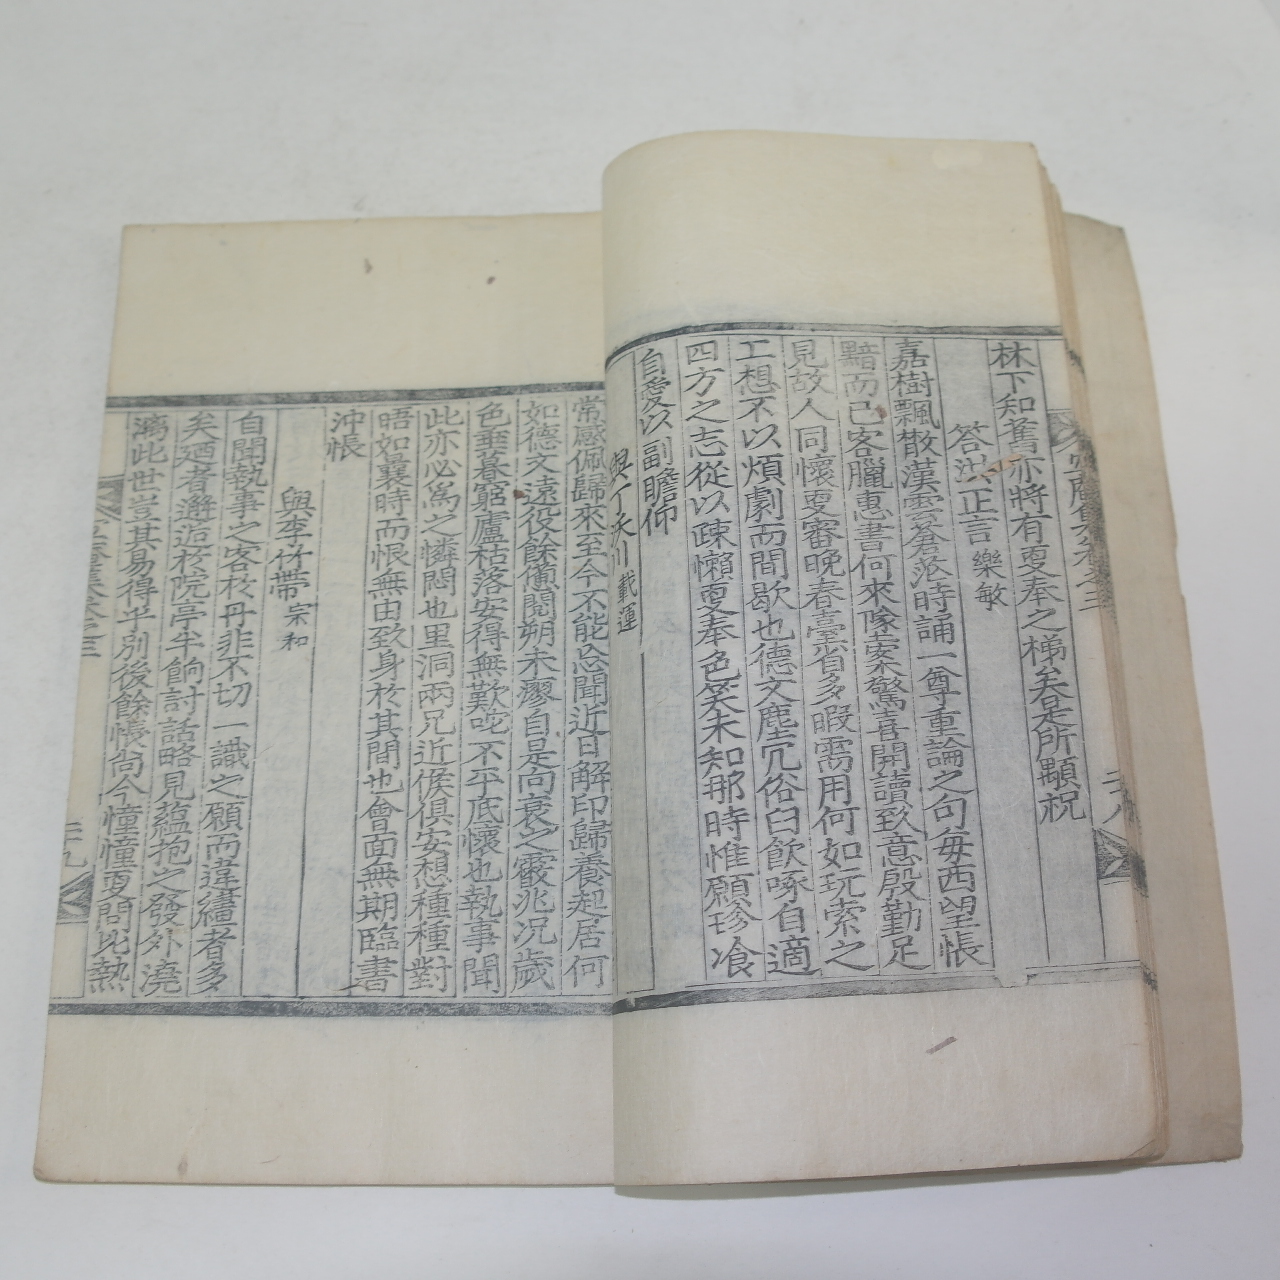 林下知舊亦將有更奉之梯矣是所顯祝
答洪正言 樂敏
嘉樹飄散漢雲蒼落時誦一尊重論之句每西望悵
黯而已客臘惠書何來隊索驚喜開讀致意殷勤足
見故人同懷更審晩春臺省多暇需用何如玩索之
工想不以煩劇而間歇也德文塵冗俗臼飮啄自適
四方之志從以疎懶更奉色笑未知那時惟願珍飡
自愛以副瞻仰
與丁 川 載運
常感佩歸來至今不能忘聞近日解印歸養起居何
如德文遠役餘憊閱朔未瘳自是向衰之徵兆况歲
色垂暮窮廬枯落安得無歎咜不平底懷也執事聞
此亦必爲之憐悶也里洞兩兄近候俱安想種種對
晤如曩時而恨無由致身於其間也會面無期臨書
沖悵
與李竹帶 宗和
自聞執事之客於丹非不切一識之願而違繣者多
矣廼者邂逅於院亭半餉討話略見蘊抱之發外澆
漓此世豈其易得乎別後餘悵尚今憧憧更問比熱